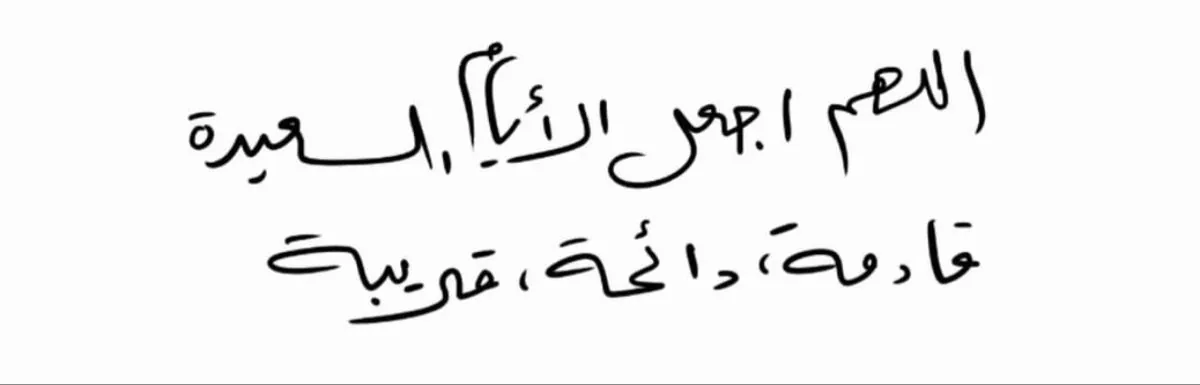 اللهم اجعل الأيام السعيدة
قادمة، دائمة، قريبة